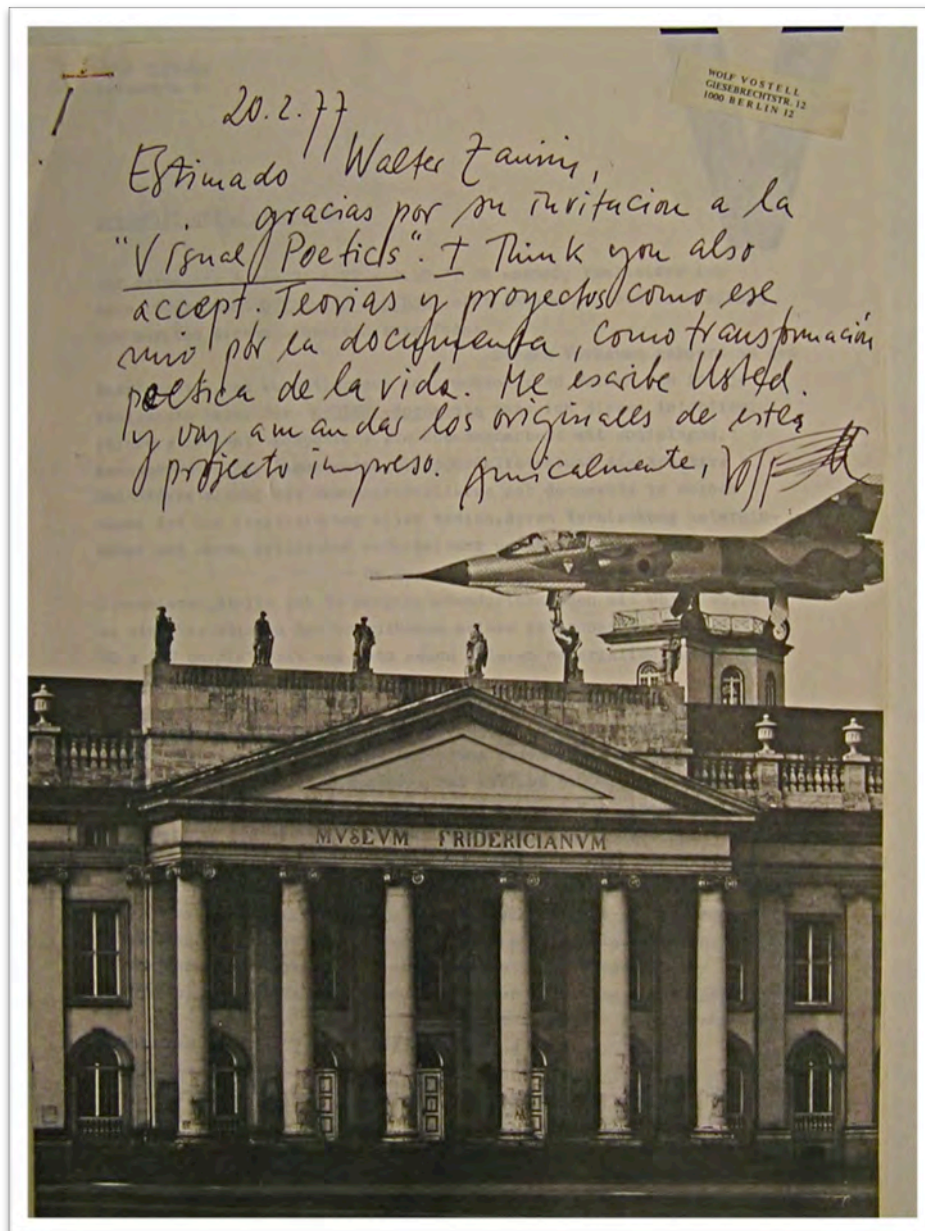 WOLF VOSTELL
GIESEBRECHTSTR. 12
1000 BERLIN 12
20.2.77
Estimado Walter Zanini,
gracias por su invitacion a la
"Visual Poetics". I Think you also
accept. Teorias y proyectos como ese
mio por la documenta, como transformación
poetica de la vida. Me escribe Usted.
y voy a mandar los originales de este
projecto impreso. Amicalmente,
MVSEVM FRIDERICIANVM